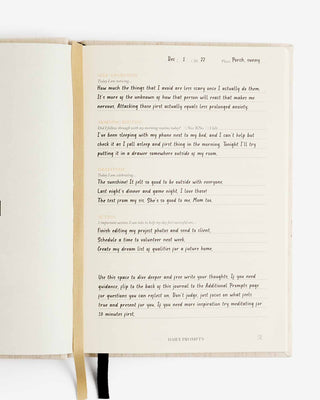 Dec / 1 / 22 Place Porch, sunny
SELF-AWARENESS
Today I am noticing...
How much the things that I avoid are less scary once I actually do them.
It's more of the unknown of how that person will react that makes me
nervous. Attacking these first actually equals less prolonged anxiety.
Did I follow through with my morning routine today?
I've been sleeping with my phone next to my bed, and I can't help but
check it as I fall asleep and first thing in the morning. Tonight I'll try
putting it in a drawer somewhere outside of my room.
Today I am celebrating...
The sunshine! It felt so good to be outside with everyone.
Last night's dinner and game night, I love those!
The text from my sis. She's so good to me. Mom too.
3 important actions I can take to help my day feel successful are...
Finish editing my project photos and send to client.
Schedule a time to volunteer next week.
Create my dream list of qualities for a future home.
Use this space to dive deeper and free write your thoughts. If you need
guidance, flip to the back of this journal to the Additional Prompts page
for questions you can reflect on. Don't judge, just focus on what feels
true and present for you. If you need more inspiration try meditating for
10 minutes first.
DAILY PROMPTS